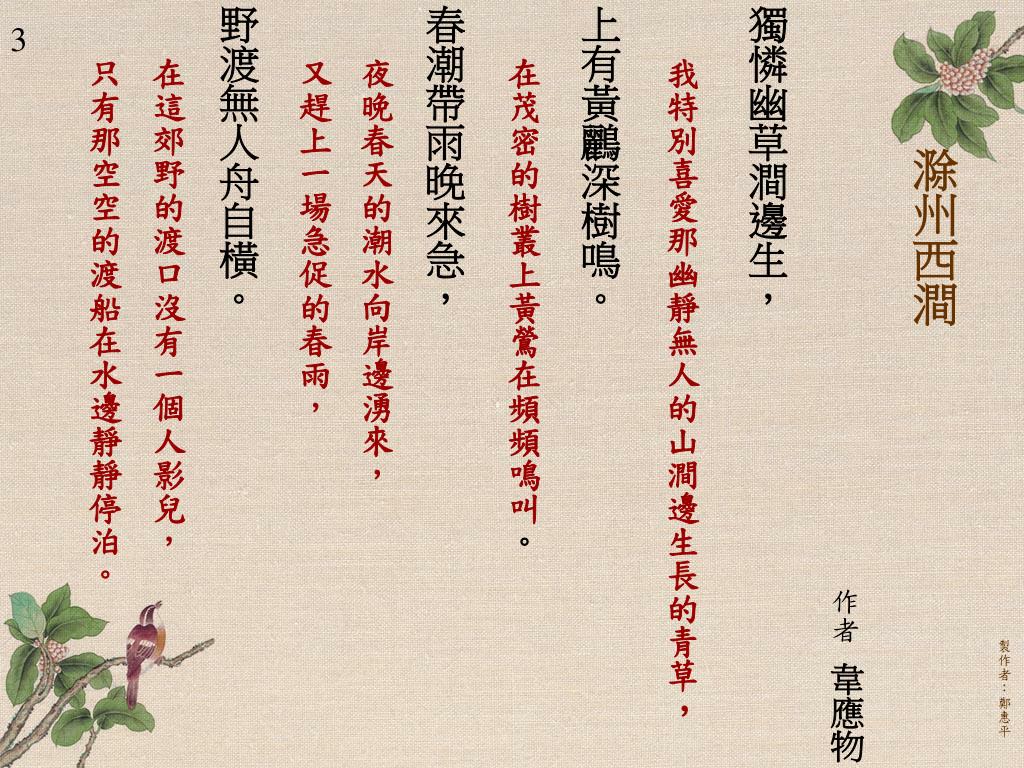 滁州西澗
作者 韋應物
獨憐幽草澗邊生，
我特別喜愛那幽靜無人的山澗邊生長的青草，
上有黃鸝深樹鳴。
在茂密的樹叢上黃鶯在頻頻鳴叫。
春潮帶雨晚來急，
夜晚春天的潮水向岸邊湧來，
又趕上一場急促的春雨，
野渡無人舟自橫。
在這郊野的渡口沒有一個人影兒，
只有那空空的渡船在水邊靜靜停泊。
製作者：鄭惠平
3